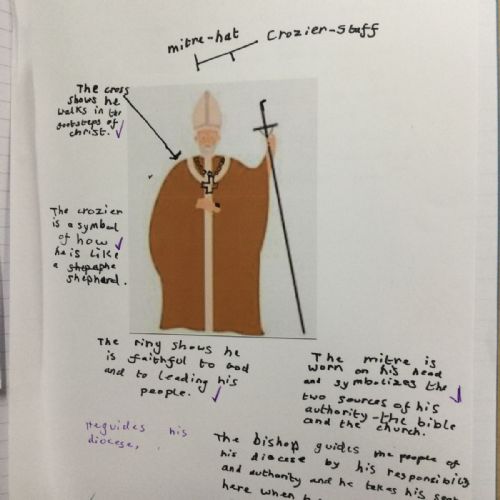 mitre-hat
Crozier-staff
The cross
shows he
walks in the
footsteps of
christ.
The crozier
is a symbol
of how
he is like
a shepaphe
shepherd.
The ring shows he
is faithful to God
and to leading his
people.
The mitre is
worn on his head
and symbolizes the
two sources of his
authority-the bible
and the church.
He guides his
diocese,
The bishop guides the people of
his diocese by his responsibility
and authority and he takes his seat
here when